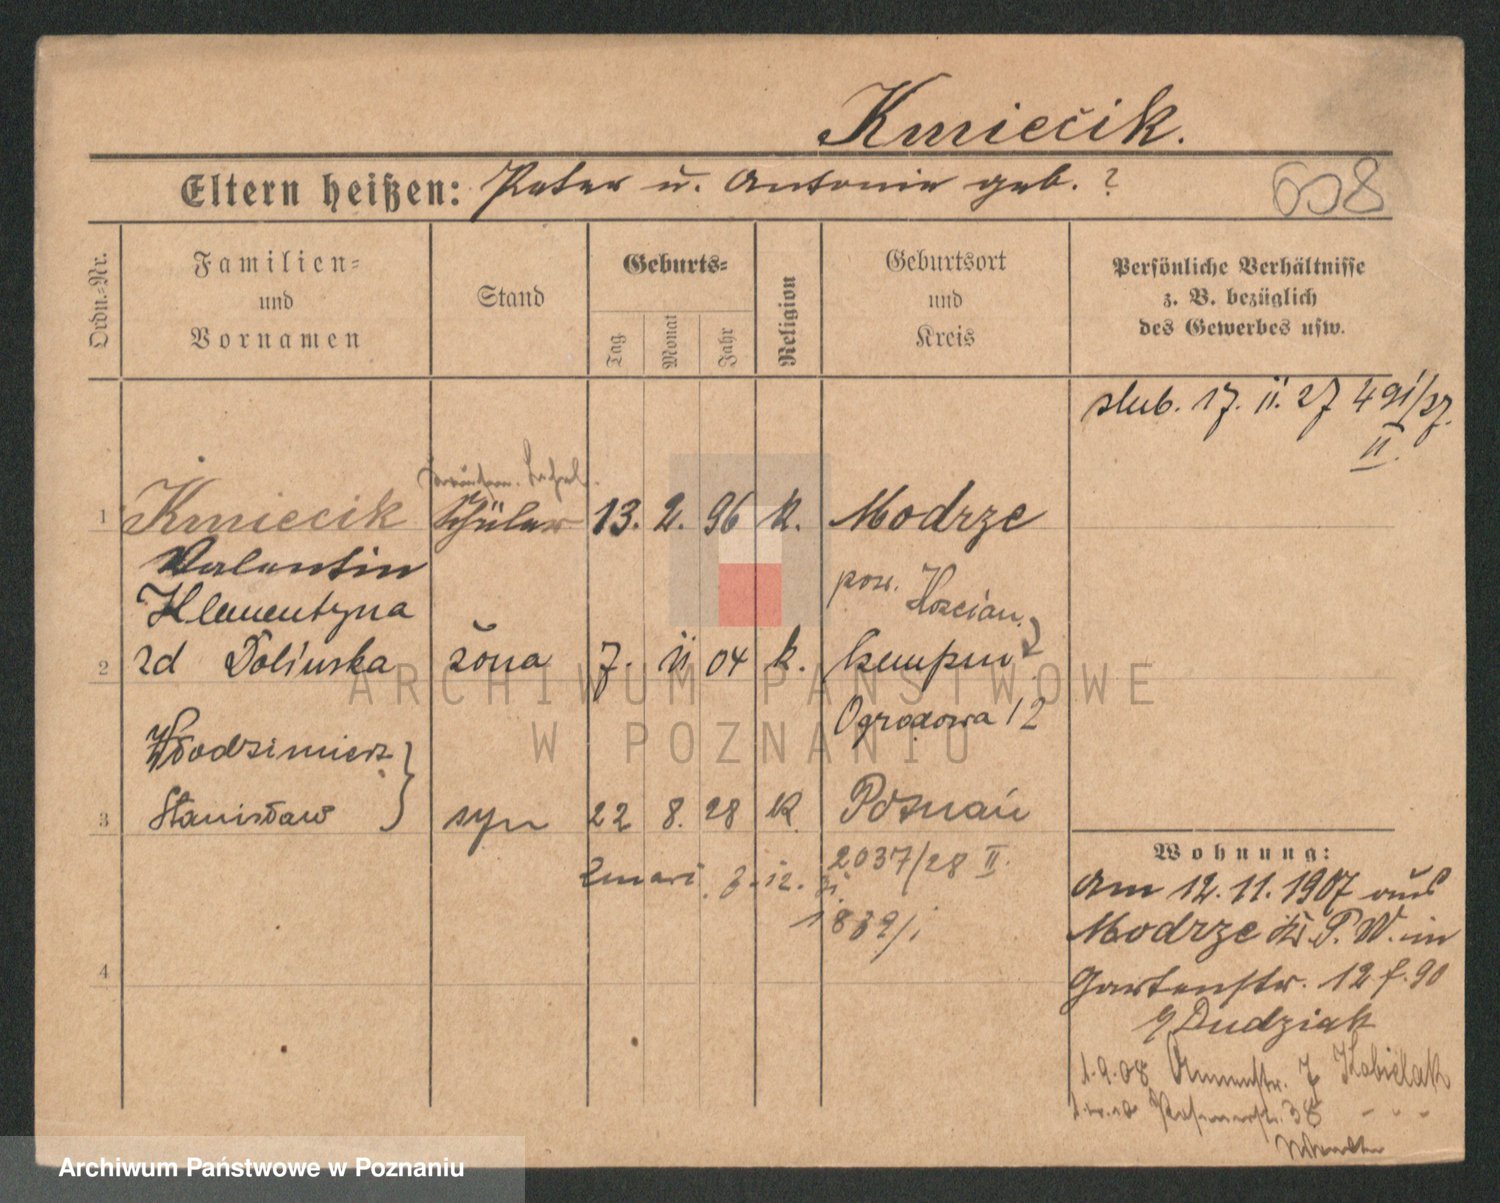 Kmiećik.
Eltern heißen: Peter u. Antonie geb. ?
658
Ordn.=Nr.
Familien=
und
Vornamen
Stand
Geburts=
Tag
Monat
Jahr
Religion
Geburtsort
und
Kreis
Persönliche Verhältnisse
z. B. bezüglich
des Gewerbes usw.
slub. 17. 11. 27 491/27.
II.
1 Kmiecik Schüler 13. 2. 96 k. Modrze
Valentin
pow. Kościan
Klementyna
2 zd Dolinska żona 7. 11 04 k. Kempen
Ogrodowa 12
Włodzimierz
3 Stanisław syn 22 8. 28 k. Poznań
2037/28 II.
Zmarł
4
Wohnung:
Am 12.11.1907 aus
Modrze Kr. P. W. in
Gartenstr. 12 f. 90
Dudziak
1.9.08 7 Kobielak
38
ARCHIWUM PAŃSTWOWE
W POZNANIU
Archiwum Państwowe w Poznaniu